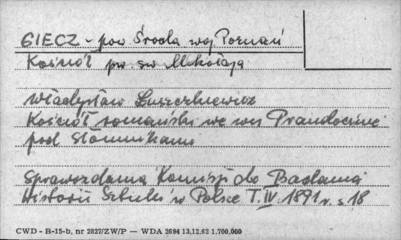 GIECZ - pow Środa woj Poznań
Kościół pw. św Mikołaja
Władysław Łuszczkiewicz
Kościół romański we wsi Prandocinie
pod Słomnikami
Sprawozdania Komisji do Badania
Historii Sztuki w Polsce T. IV 1891 r. s 18
CWD - B-15-b, nr 2827/ZW/P — WDA 2694 13.12.62 1.700.000